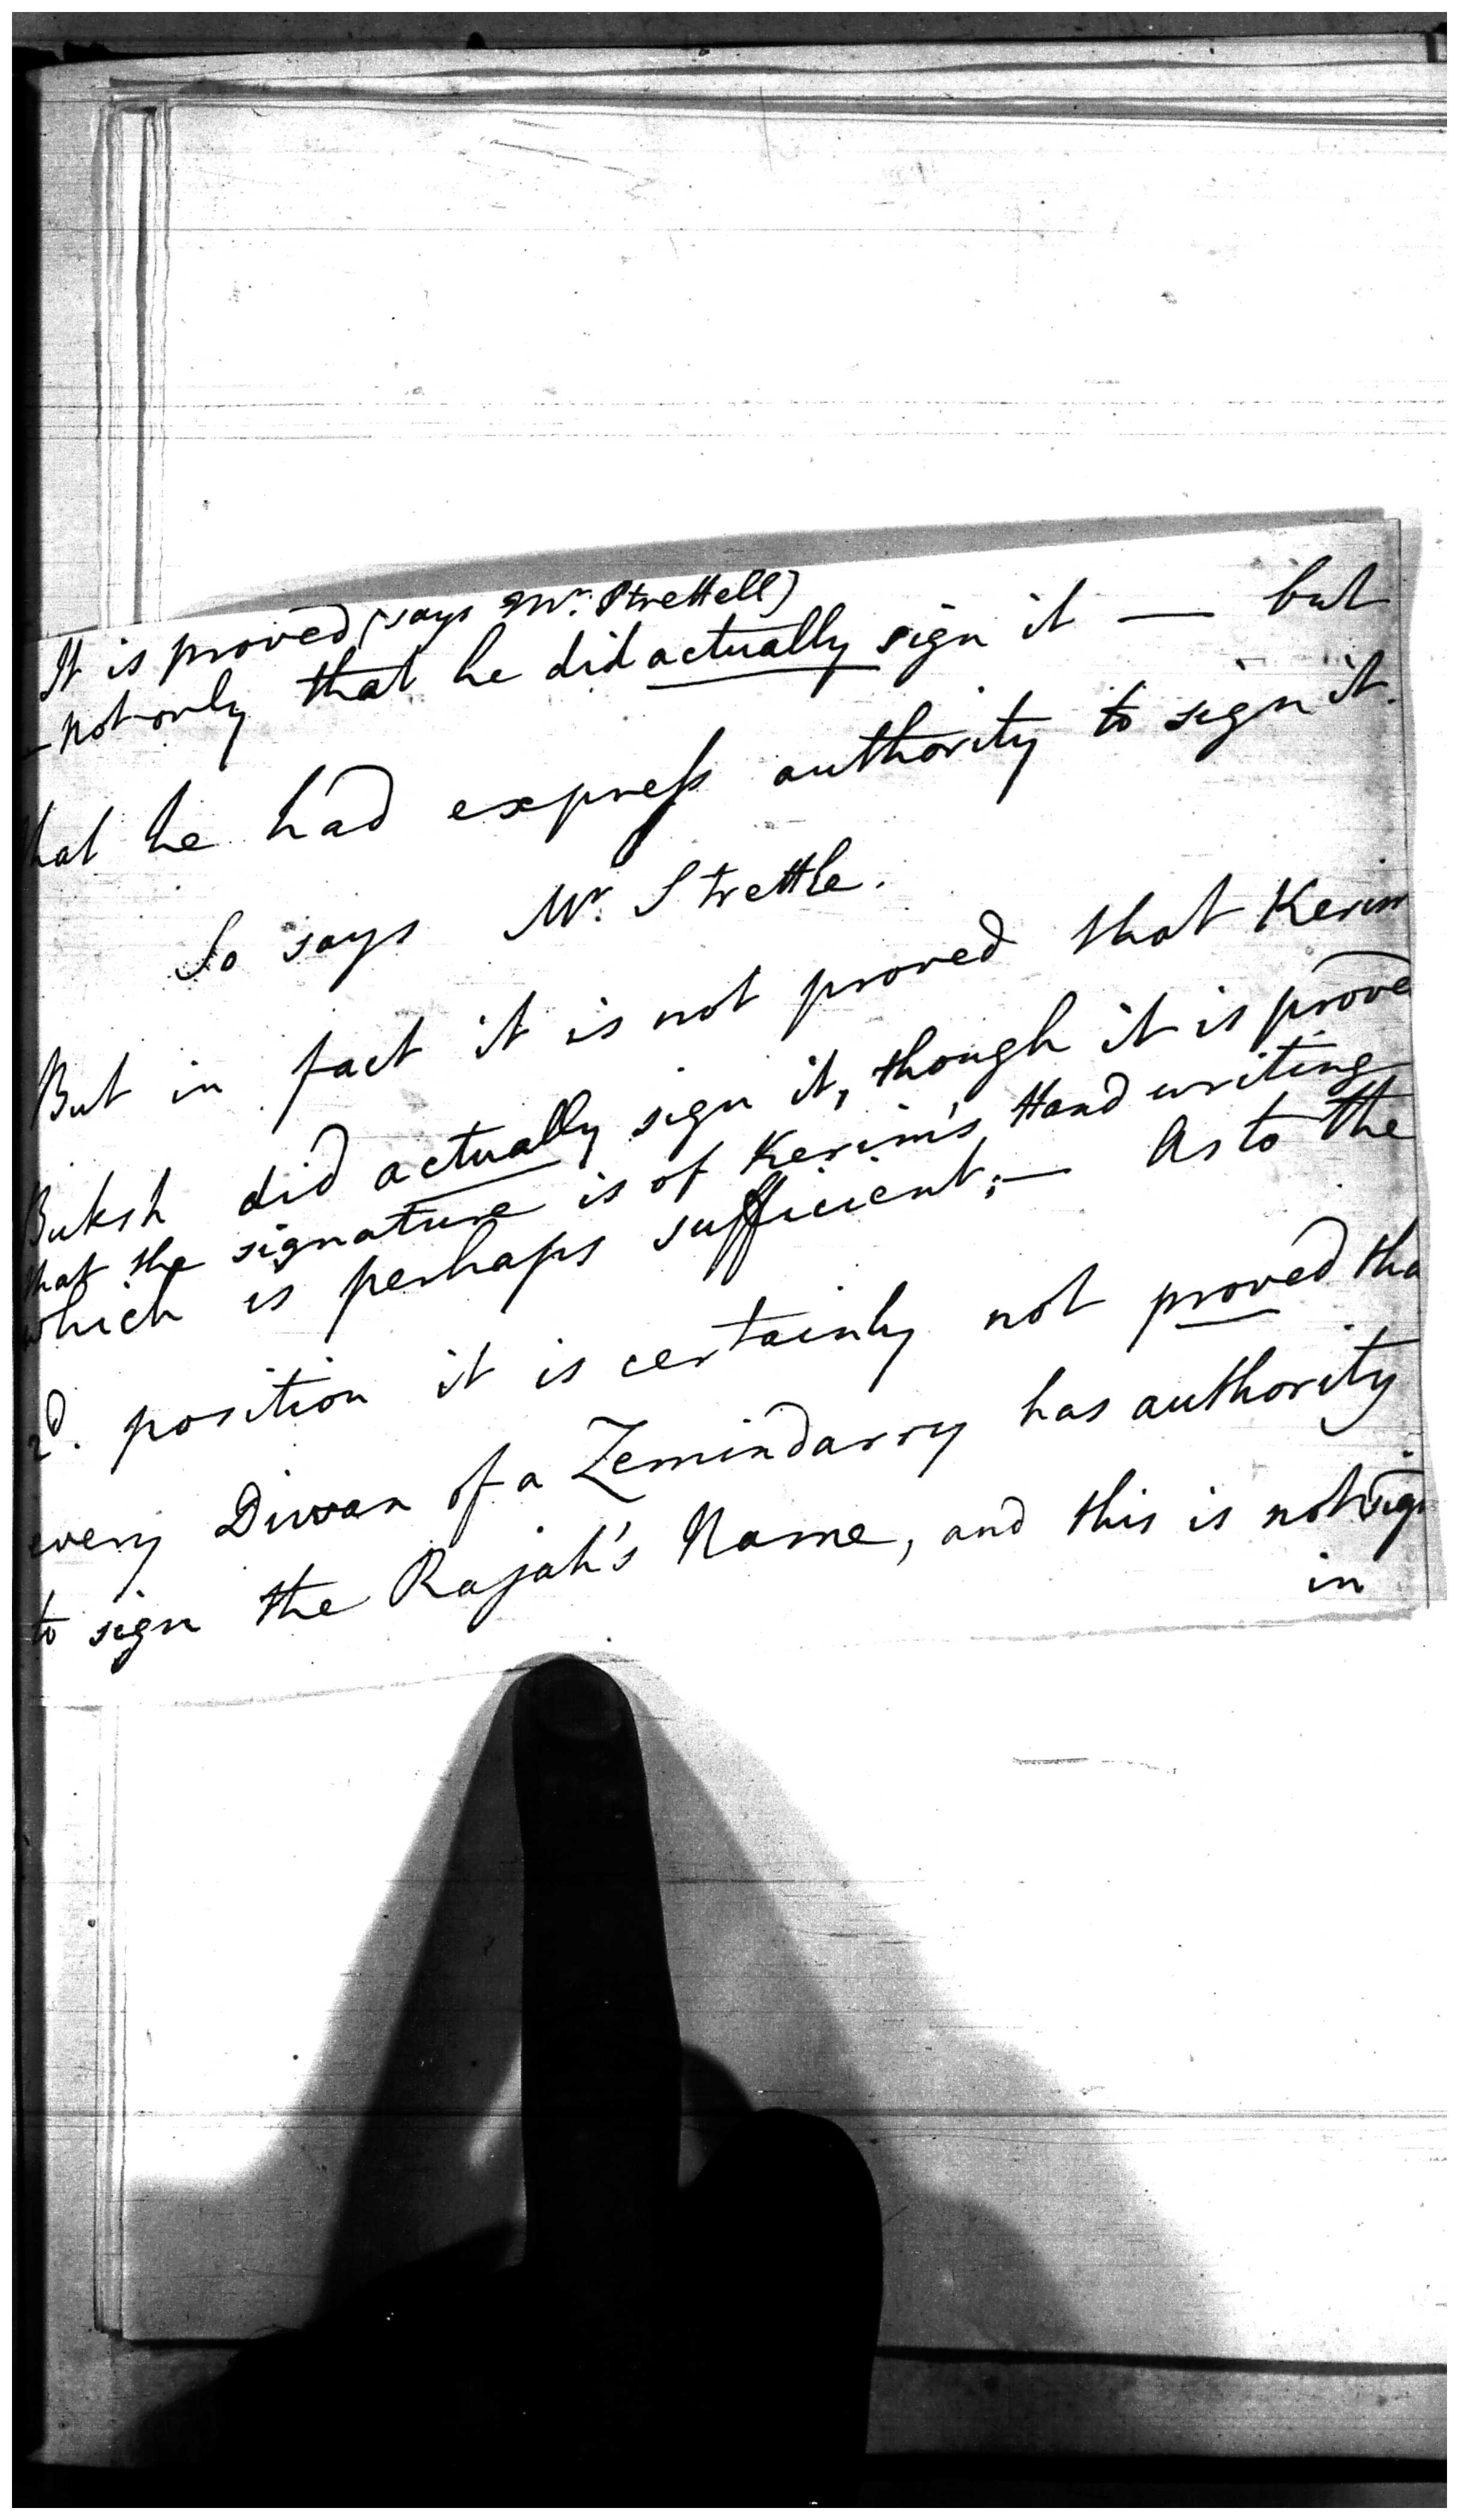 It is proved (says Mr. Strettell)
- not only that he did actually sign it — but
that he had express authority to sign it.
So says Mr. Strettle.
But in fact it is not proved that Kerim
Buksh did actually sign it, though it is prove
that the signature is of Kerim's Hand writing
which is perhaps sufficient; — As to the
2d. position it is certainly not proved tha
every Diwan of a Zemindarry has authority
to sign the Rajah's Name, and this is not sign
in